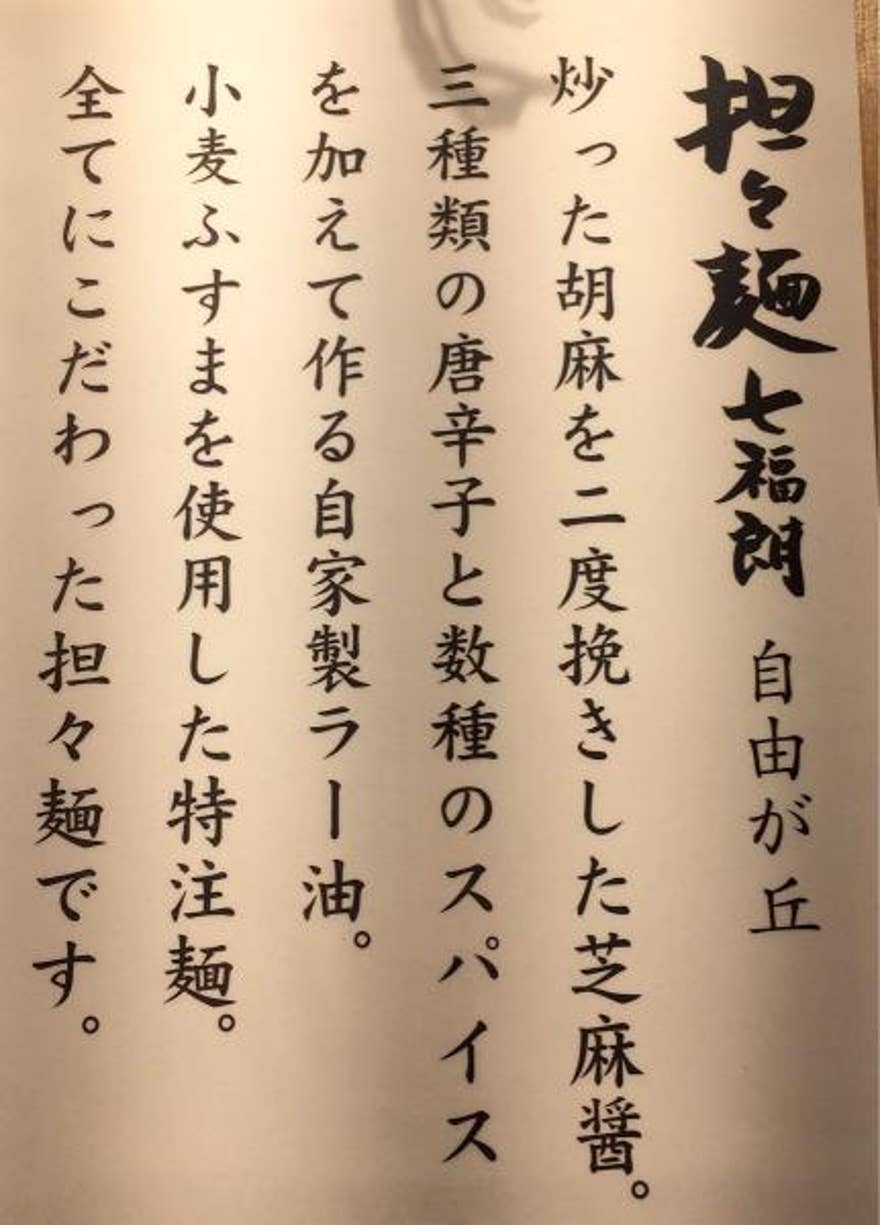 担々麺 七福朗 自由が丘
炒った胡麻を二度挽きした芝麻醤。
三種類の唐辛子と数種のスパイス
を加えて作る自家製ラー油。
小麦ふすまを使用した特注麺。
全てにこだわった担々麺です。